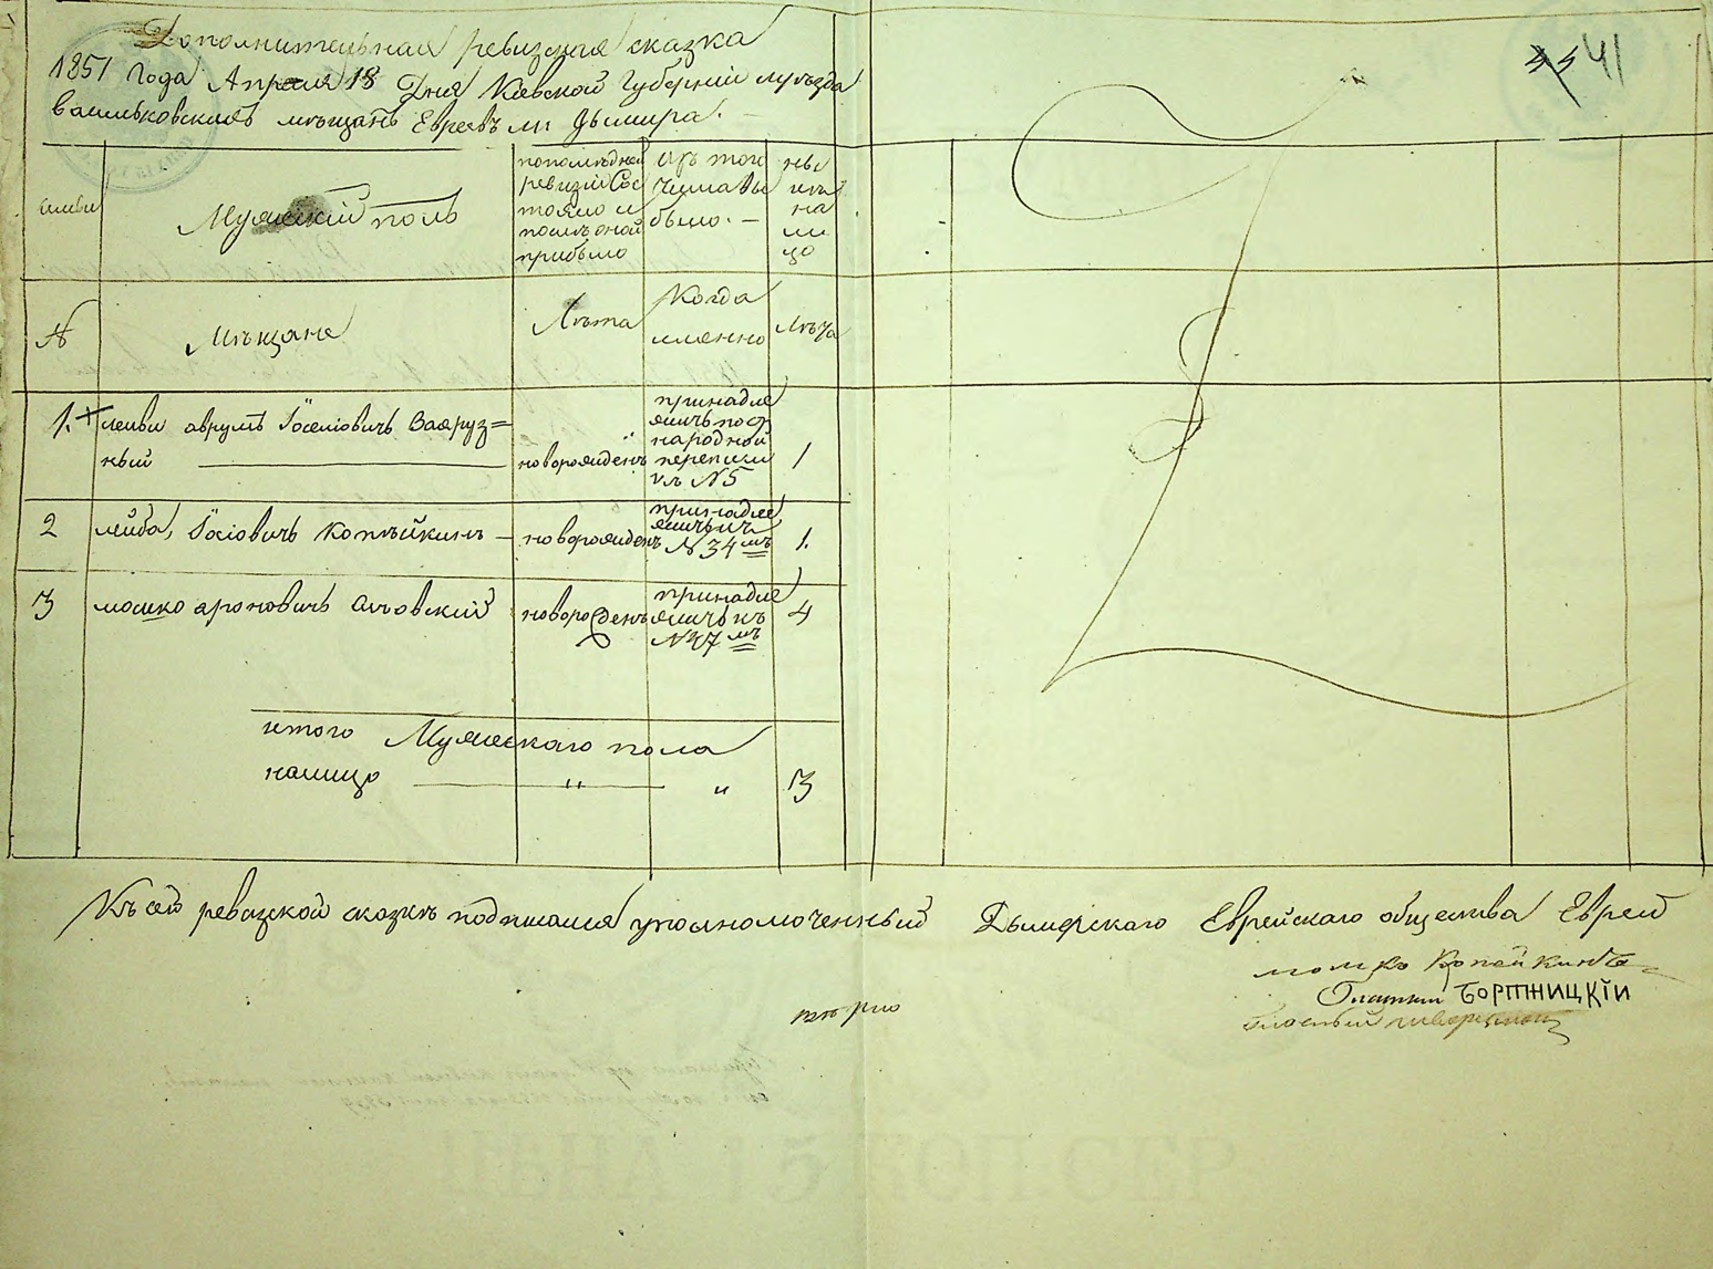 Дополнительная ревизская сказка
1851 года Апреля 18 Дня Киевской губернии и уѣзда
васильковскихъ мѣщанъ Евреевъ м. Дымира.
41
семьи
Мужескій полъ
по последней
ревизіи Сос
тояло и
послѣ оной
прибыло
Изъ того
числа вы
было. —
ны
нѣ
на
ли
цо
№
Мѣщане
Лѣта
Когда
именно
Лѣта
1. лейви аврумъ Іоселіовичъ Заяруз=
ный
новорожденъ
принадле
жить по
народной
переписи
къ №5
1
2
лейба, Іосіовичъ Копѣйкинъ —
новорожденъ
принадле
жить къ
№ 34 мъ
1.
3
мошко ароновичъ
новорожденъ
принадле
жить къ
№ 37 мъ
итого Мужескаго пола
налицо — " — "
3
Къ сей ревизской сказкѣ подписался уполномоченный Дымерскаго Еврейскаго общества Еврей
мошко Копейкинъ
Гласный БОРТНИЦКІЙ
вѣрно
Гласный